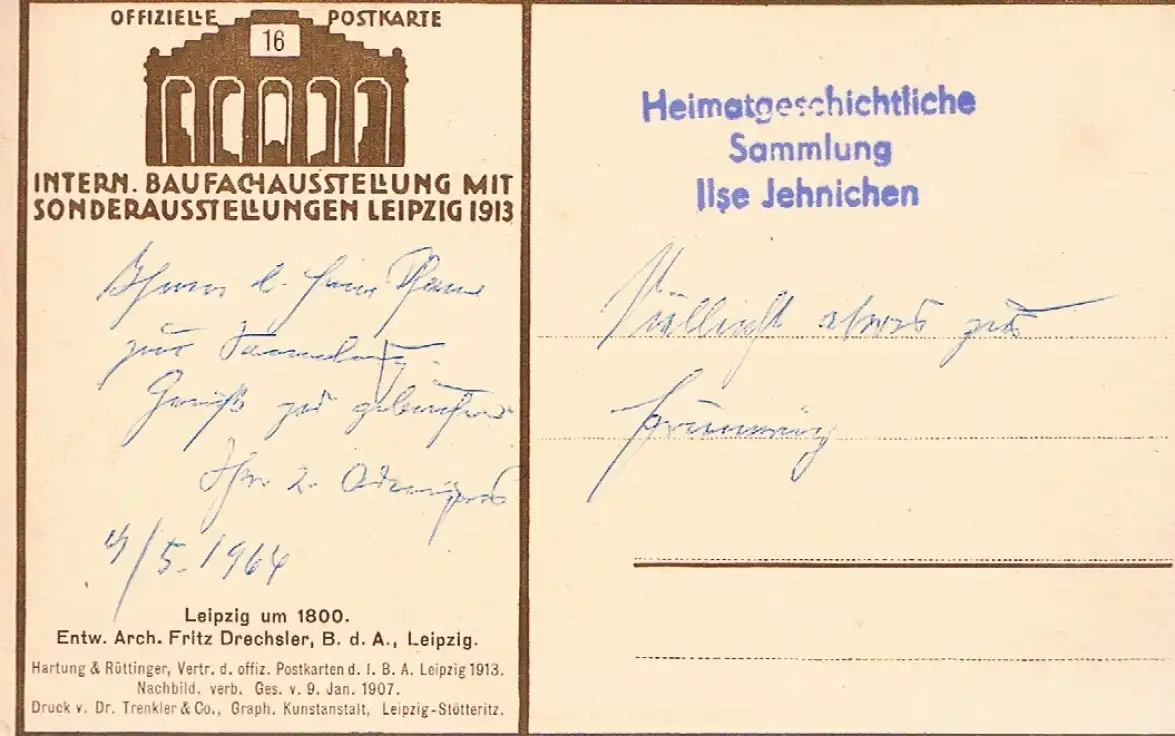 OFFIZIELLE POSTKARTE
16
INTERN. BAUFACHAUSSTELLUNG MIT
SONDERAUSSTELLUNGEN LEIPZIG 1913
zur Sammlung.
Ihr
4/5. 1964
Leipzig um 1800.
Entw. Arch. Fritz Drechsler, B. d. A., Leipzig.
Hartung & Rüttinger, Vertr. d. offiz. Postkarten d. I. B. A. Leipzig 1913.
Nachbild. verb. Ges. v. 9. Jan. 1907.
Druck v. Dr. Trenkler & Co., Graph. Kunstanstalt, Leipzig-Stötteritz.
Heimatgeschichtliche
Sammlung
Ilse Jehnichen
Vielleicht etwas zur
Erinnerung